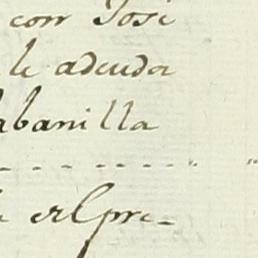 con José
le adeuda
abanilla
el pre-